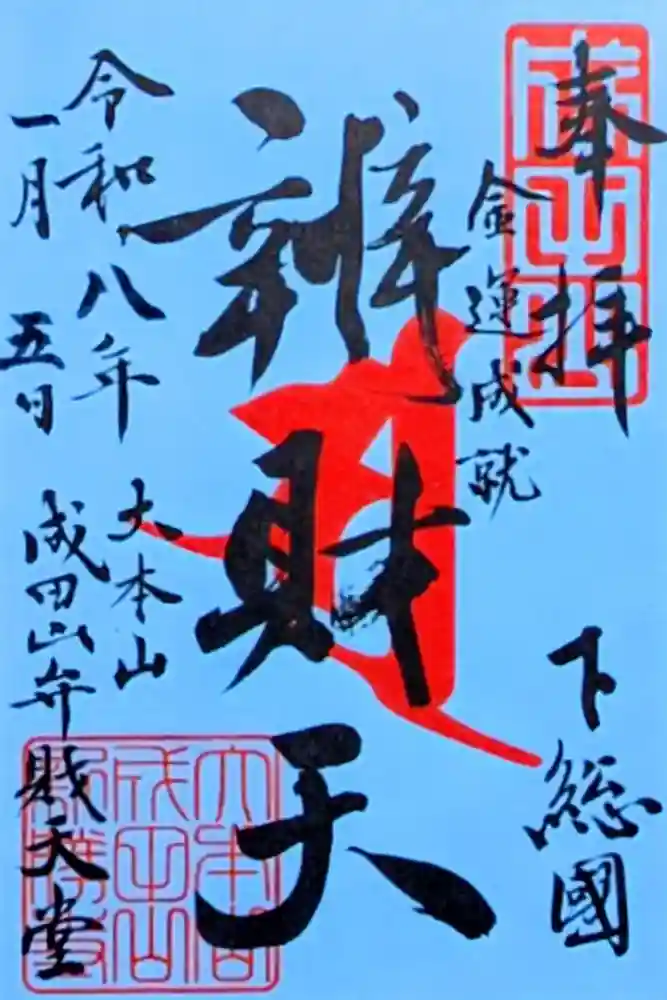 奉拝
下総國
金運成就
辨財天
令和八年
一月五日
大本山
成田山弁財天堂
成田山
大本山
成田山